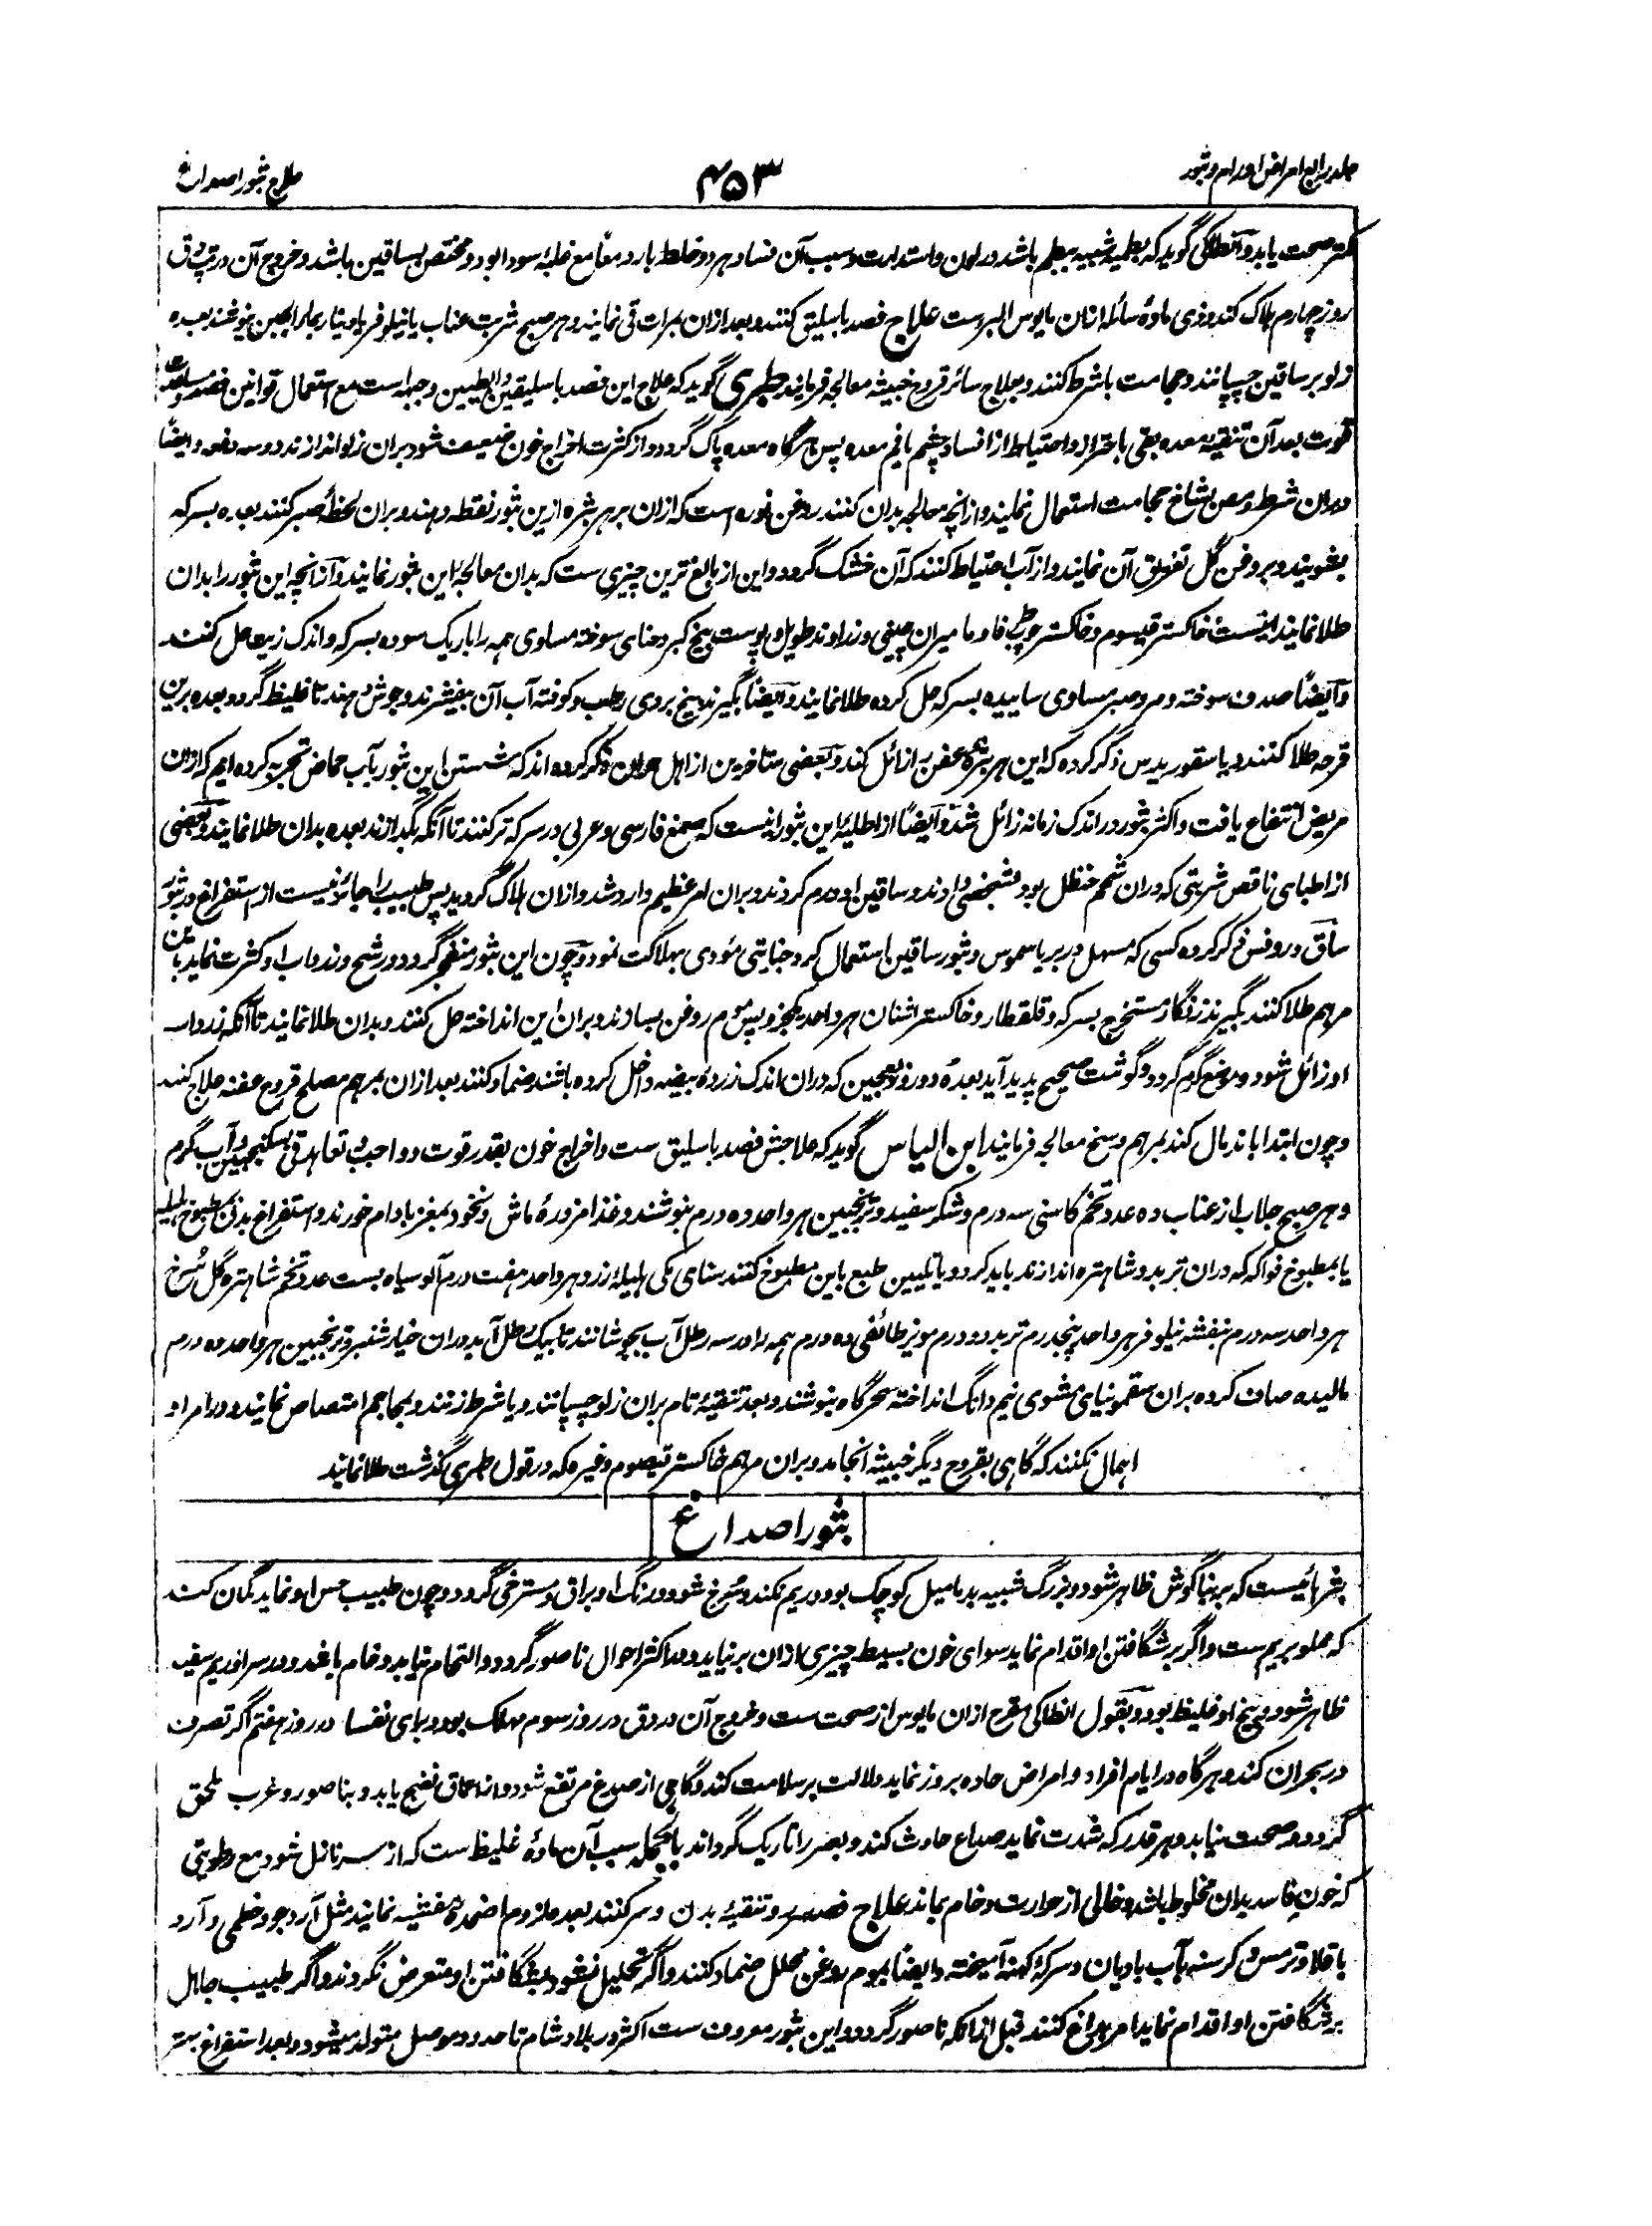 جلد رابع امراض اورام و بثور
۴۵۳
علاج بثور اصداغ
کمتر صحت یابد و انطاکی گوید که بطمیه شبیه ببطم باشد در لون و استدارت و سبب آن فساد هر دو خلط بارد معاً مع غلبهٔ سودا بود و مختص بساقین باشد و خروج آن در تپ دق
روز چهارم هلاک کند و ذی مادهٔ سائله ازان مایوس البرءست علاج فصد باسلیق کنند و بعد ازان بمرات قی نمایند و هر صبح شربت عناب یا نیلوفر یا دینار بماءالجبن نوشند بعده
زلو بر ساقین چسپانند و حجامت باشرط کنند و بعلاج سائر قروح خبیثه معالجه فرمایند طبری گوید که علاج این فصد باسلیقین وابطیین وجبهاست مع استعمال قوانین فصد و مساعدت
قوت بعد آن تنقیهٔ معده بقی باحتراز و احتیاط از افساد چشم یا فم معده پس هرگاه معده پاک گردد و از کثرت اخراج خون ضعیف شود بران زلو اندازند دو سه دفعه و ایضاً
دران شرط و مص بشاخ حجامت استعمال نمایند و ازانچه معالجه بدان کنند روغن نوره است که ازان بر هر بثره ازین بثور نقطه دهند و بران لحظهٔ صبر کنند بعده بسرکه
بشویند و بروغن گل تعریق آن نمایند و از آب احتیاط کنند که آن خشک گردد و این از بالغ ترین چیزی ست که بدان معالجهٔ این بثور نمایند و ازانچه این بثور را بدان
طلا نمایند اینست خاکستر قیسوم و خاکستر چوب فاو مامیران چینی و زراوند طویل و پوست بیخ کبر و حنای سوخته مساوی همه را باریک سوده بسرکه و اندک زیت حل کنند
و ایضاً صدف سوخته و مر و صبر مساوی ساییده بسرکه حل کرده طلا نمایند و ایضاً بگیرند بیخ بردی رطب و کوفته آب آن بیفشرند و جوش دهند تا غلیظ گردد بعده برین
قرحه طلا کنند و یا سقوریدس ذکر کرده که این هر بثرهٔ عفن را زائل کند و بعضی متاخرین از اهل جران ذکر کرده اند که شستن این بثور بآب حماض تجربه کرده ایم که ازان
مریض انتفاع یافت و اکثر بثور در اندک زمانه زائل شد و ایضاً از اطلیهٔ این بثور اینست که صمغ فارسی و عربی در سرکه تر کنند تا آنکه بگدازند بعده بدان طلا نمایند و بعضی
از اطبای ناقص شربتی که دران شحم حنظل بود بشخصی دادند و ساقین او ورم کردند و بران امر عظیم وارد شد و ازان هلاک گردید پس طبیب را جائز نیست از استفراغ در بثور
ساق و روفس ذکر کرده کسی که مسهل در بریاسموس و بثور ساقین استعمال کرد جنایتی مودی بهلاکت نمود و چون این بثور منفجر گردد و رشح و زرداب او کثرت نماید باین
مرهم طلا کنند بگیرند زنگار مستخرج بسرکه و قلقطار و خاکستر اشنان هر واحد یکجزو پس موم روغن بسازند و بران این انداخته حل کنند و بدان طلا نمایند تا آنکه زرداب
او زائل شود و موضع گرم گردد و گوشت صحیح پدید آید بعدهٔ دو روز بعجین که دران اندک زردهٔ بیضه داخل کرده باشند ضماد کنند بعد ازان بمرهم مصلح قروح عفنه علاج کنند
و چون ابتدا باندمال کند بمرهم وسخ معالجه فرمایند ابن الیاس گوید که علاجش فصد باسلیق ست و اخراج خون بقدر قوت و واجب و تعاهد قی بسکنجبین و آب گرم
و هر صبح جلاب از عناب ده عدد تخم کاسنی سه درم و شکر سفید و ترنجبین هر واحد ده درم بنوشند و غذا مزورهٔ ماش و نخود بمغز بادام خورند و استفراغ بدن بمطبوخ هلیله
یا بمطبوخ فواکه که دران تربد و شاهتره اندازند باید کرد و یا تلیین طبع باین مطبوخ کنند سنای مکی هلیلهٔ زرد هر واحد هفت درم آلو سیاه بست عدد تخم شاهتره گل سرخ
هر واحد سه درم بنفشه نیلوفر هر واحد پنجدرم تربد دو درم مویز طائفی ده درم همه را در سه رطل آب بجوشانند تا بیک رطل آید دران خیارشنبر و ترنجبین هر واحد ده درم
مالیده صاف کرده بران سقمونیای مشوی نیم دانگ انداخته سحرگاه بنوشند و بعد تنقیهٔ تام بران زلو چسپانند و یا شرط زنند و بمحاجم امتصاص نمایند و در امر او
اهمال نکنند که گاهی بقروح دیگر خبیثه انجامد و بران مرهم خاکستر قیصوم و غیره که در قول طبری گذشت طلا نمایند
بثور اصداغ
بثرهائیست که بر بناگوش ظاهر شود و بزرگ شبیه بدمامیل کوچک بود و ریم نکند و سرخ شود و رنگ او براق و مسترخی گردد و چون طبیب حس او نماید گمان کند
که مملو بریم ست و اگر بر شگافتن او اقدام نماید سوای خون بسیط چیزی ازان بر نیاید و در اکثر احوال ناصور گردد و التحام نیابد و خام باشد و در سر او ریم سفید
ظاهر شود و بیخ او غلیظ بود و بقول انطاکی مقرح ازان مایوس از صحت ست و خروج آن در دق در روز سوم مهلک بود و برای نفسا در روز هفتم اگر تصرف
در بحران کند و هرگاه در ایام افراد و امراض حاده بروز نماید دلالت بر سلامت کند و گاهی از صدغ مرتفع شود و از اعماق نضج یابد و بناصور و غرب ملحق
گردد و صحت نیابد و هر قدر که شدت نماید صداع حادث کند و بصر را تاریک گرداند بالجمله سبب آن مادهٔ غلیظ ست که از سر نازل شود مع رطوبتی
که خون فاسد بدان مخلوط باشد و خالی از حرارت و خام بماند علاج فصد سر و تنقیهٔ بدن و سر کنند بعد ملازم اضمدهٔ مفشیه نمایند مثل آرد جو و خطمی و آرد
باقلا و ترمس و کرسنه بآب بادیان و سرکهٔ کهنه آمیخته و ایضاً بموم روغن محلل ضماد کنند و اگر تحلیل نشود بشگافتن او متعرض نگردند و اگر طبیب جاهل
بر شگافتن او اقدام نماید امر بداغ کنند قبل ازانکه ناصور گردد و این بثور معروف ست اکثر در بلاد شام تا حدود موصل متولد میشود و بعد استفراغ بستر